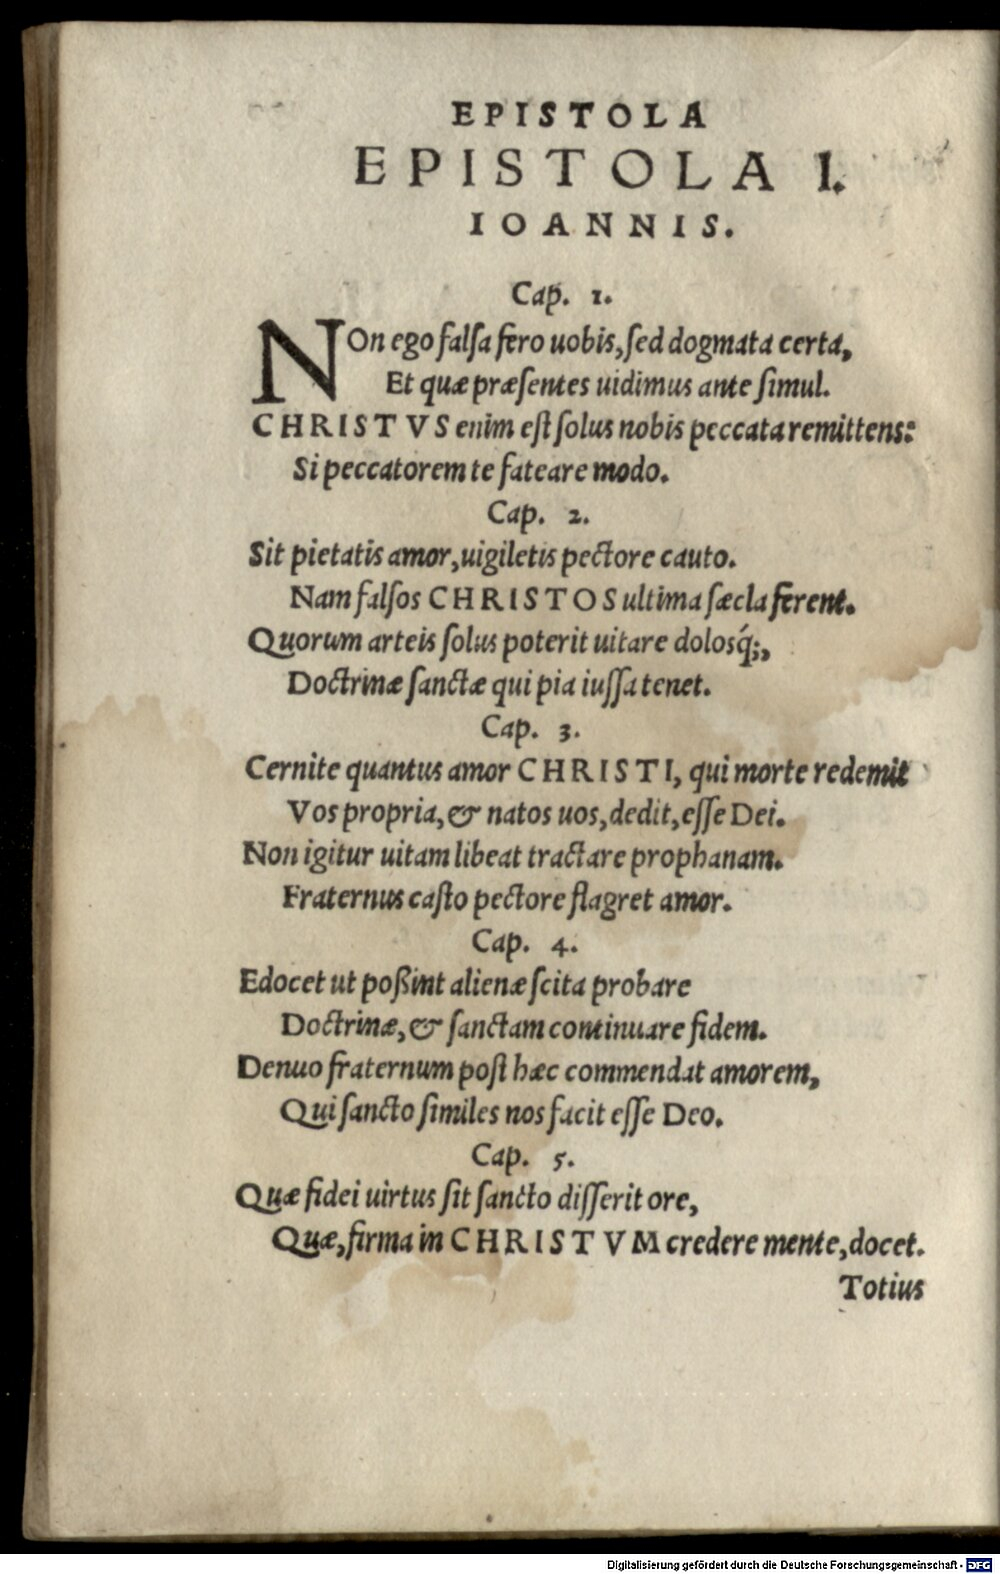 EPISTOLA
EPISTOLA I.
IOANNIS.
Cap. 1.
NOn ego falſa fero uobis, ſed dogmata certa,
Et quæ præſentes uidimus ante ſimul.
CHRISTVS enim eſt ſolus nobis peccata remittens:
Si peccatorem te fateare modo.
Cap. 2.
Sit pietatis amor, uigiletis pectore cauto.
Nam falſos CHRISTOS ultima ſæcla ferent.
Quorum arteis ſolus poterit uitare dolosq́;,
Doctrinæ ſanctæ qui pia iuſſa tenet.
Cap. 3.
Cernite quantus amor CHRISTI, qui morte redemit
Vos propria, & natos uos, dedit, eſſe Dei.
Non igitur uitam libeat tractare prophanam.
Fraternus caſto pectore flagret amor.
Cap. 4.
Edocet ut poßint alienæ ſcita probare
Doctrinæ, & ſanctam continuare fidem.
Denuo fraternum poſt hæc commendat amorem,
Qui ſancto ſimiles nos facit eſſe Deo.
Cap. 5.
Quæ fidei uirtus ſit ſancto diſſerit ore,
Quæ, firma in CHRISTVM credere mente, docet.
Totius
Digitalisierung gefördert durch die Deutsche Forschungsgemeinschaft - DFG